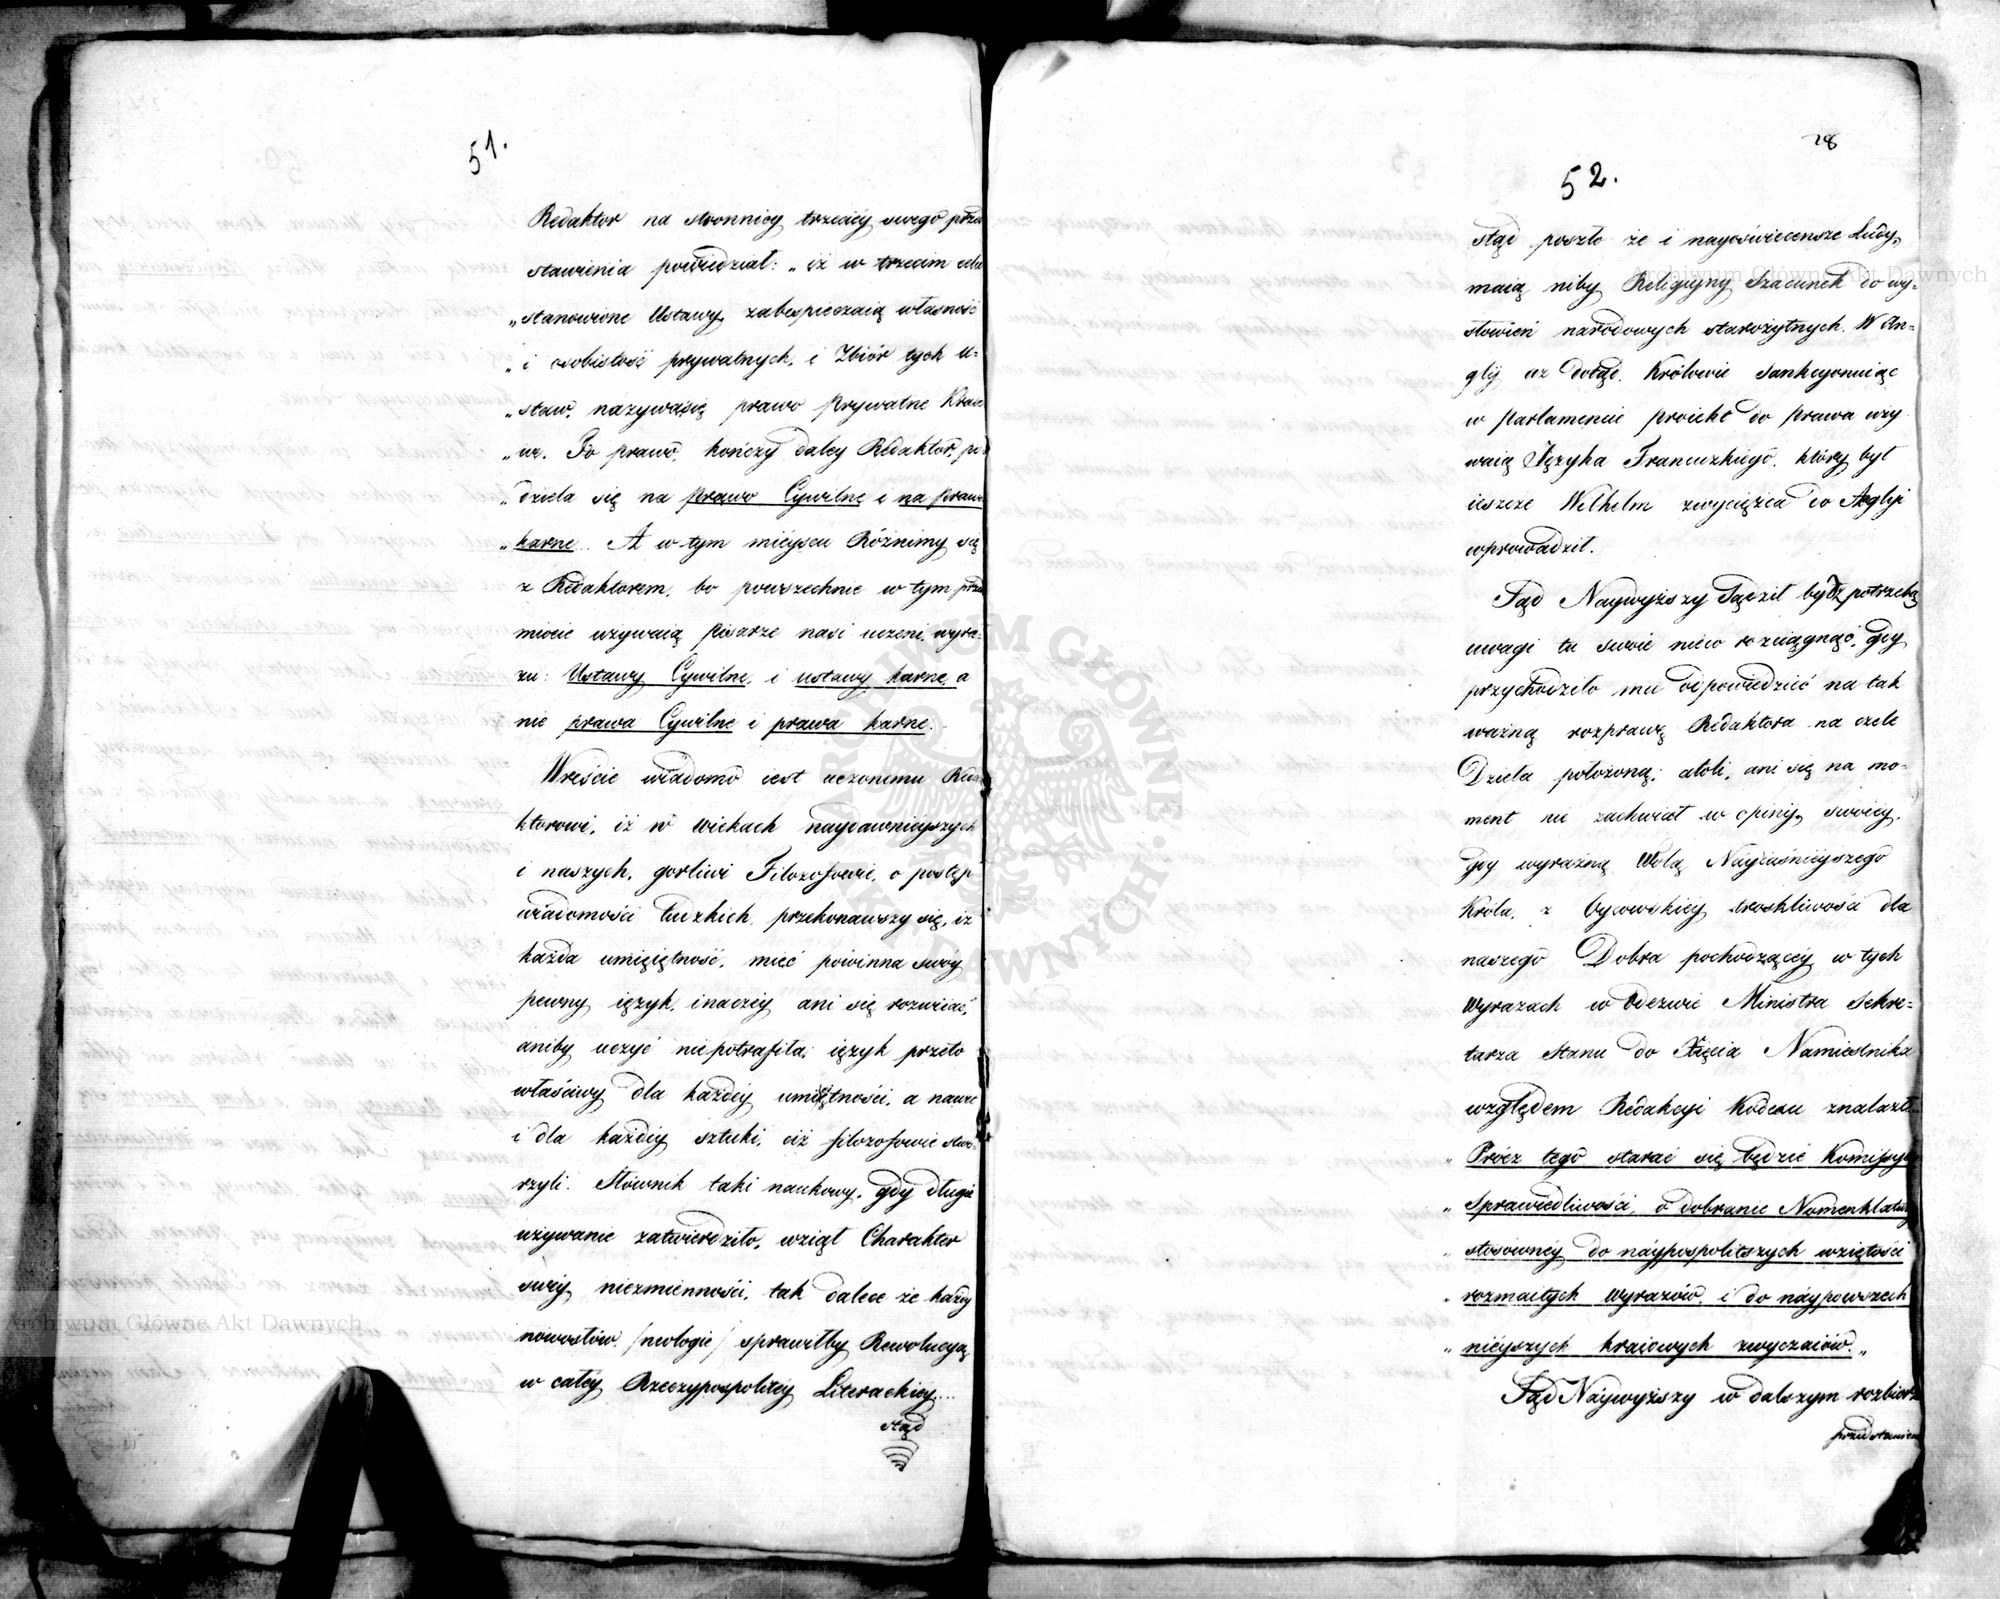 51.
Redaktor na stronnicy trzeciéy swego przed
stawienia powiedział: „iż w trzecim celu
„stanowione Ustawy, zabespieczaią własność
„i osobistość prywatnych, i Zbiór tych u-
„staw, nazywasię prawo Prywatne Kraio
„we. To prawo, kończy daley Redaktor, po
„dziela się na prawo Cywilne i na prawo
„karne„. A w tym mieyscu Różnimy się
z Redaktorem, bo powszechnie w tym prze
miocie używaią Pisarze nasi uczeni, wyra-
zu: Ustawy Cywilne, i ustawy karne, a
nie prawa Cywilne i prawa karne.
Wreście wiadomo iest uczonemu Reda
ktorowi, iż w wiekach naydawnieyszych
i naszych, gorliwi Filozofowie, o postęp
wiadomości ludzkich, przekonawszy się, iż
każda umięiętność, mieć powinna swóy
pewny ięzyk, inaczéy ani się rozwiiać,
aniby uczyć niepotrafiła; ięzyk przeto
właściwy dla każdéy umieiętności, a nawet
i dla każdéy sztuki, ciż filozofowie stwo-
rzyli. Słownik taki naukowy, gdy długie
używanie zatwierdziło, wziął Charakter
swéy niezmienności, tak dalece że każdy
nowosłów, /neologie/ sprawiłby Rewolucyą
w całéy Rzeczypospolitéy Literackiey....
stąd
28
52.
stąd poszło że i nayoświecensze Ludy,
maią niby Religiyny Szacunek do wy-
słowień narodowych starożytnych. W An-
glij aż dotąd, Królowie Sankcyonuiąc
w Parlamencie proiekt do prawa uży
waią Języka Francuzkiego, który był
ieszcze Wilhelm zwycięzca do Anglyi
wprowadził.
Sąd Naywyższy Sądził bydz potrzebą
uwagi te swoie nieco rozciągnąć, gdy
przychodziło mu odpowiedzieć na tak
ważną rozprawę Redaktora na czele
Dzieła położoną; atoli, ani się na mo-
ment nie zachwiał w opinij swoiey,
gdy wyraźną Wolą Nayiaśnieyszego
Króla, z Oycowskiey troskliwości dla
naszego Dobra pochodzącéy w tych
wyrazach w Odezwie Ministra Sekre-
tarza Stanu do Xięcia Namiestnika
względem Redakcyi Kodexu znalazł.
„Prócz tego starać się będzie Kommissya
„Sprawiedliwości, o dobranie Nomenklatury
„stosownéy do náypospolitszych wziętości
„rozmaitych wyrazów, i do náypowszech
„niéyszych kraiowych zwyczaiów.„
Sąd Náywyższy w dalszym rozbiorze
przedstawien